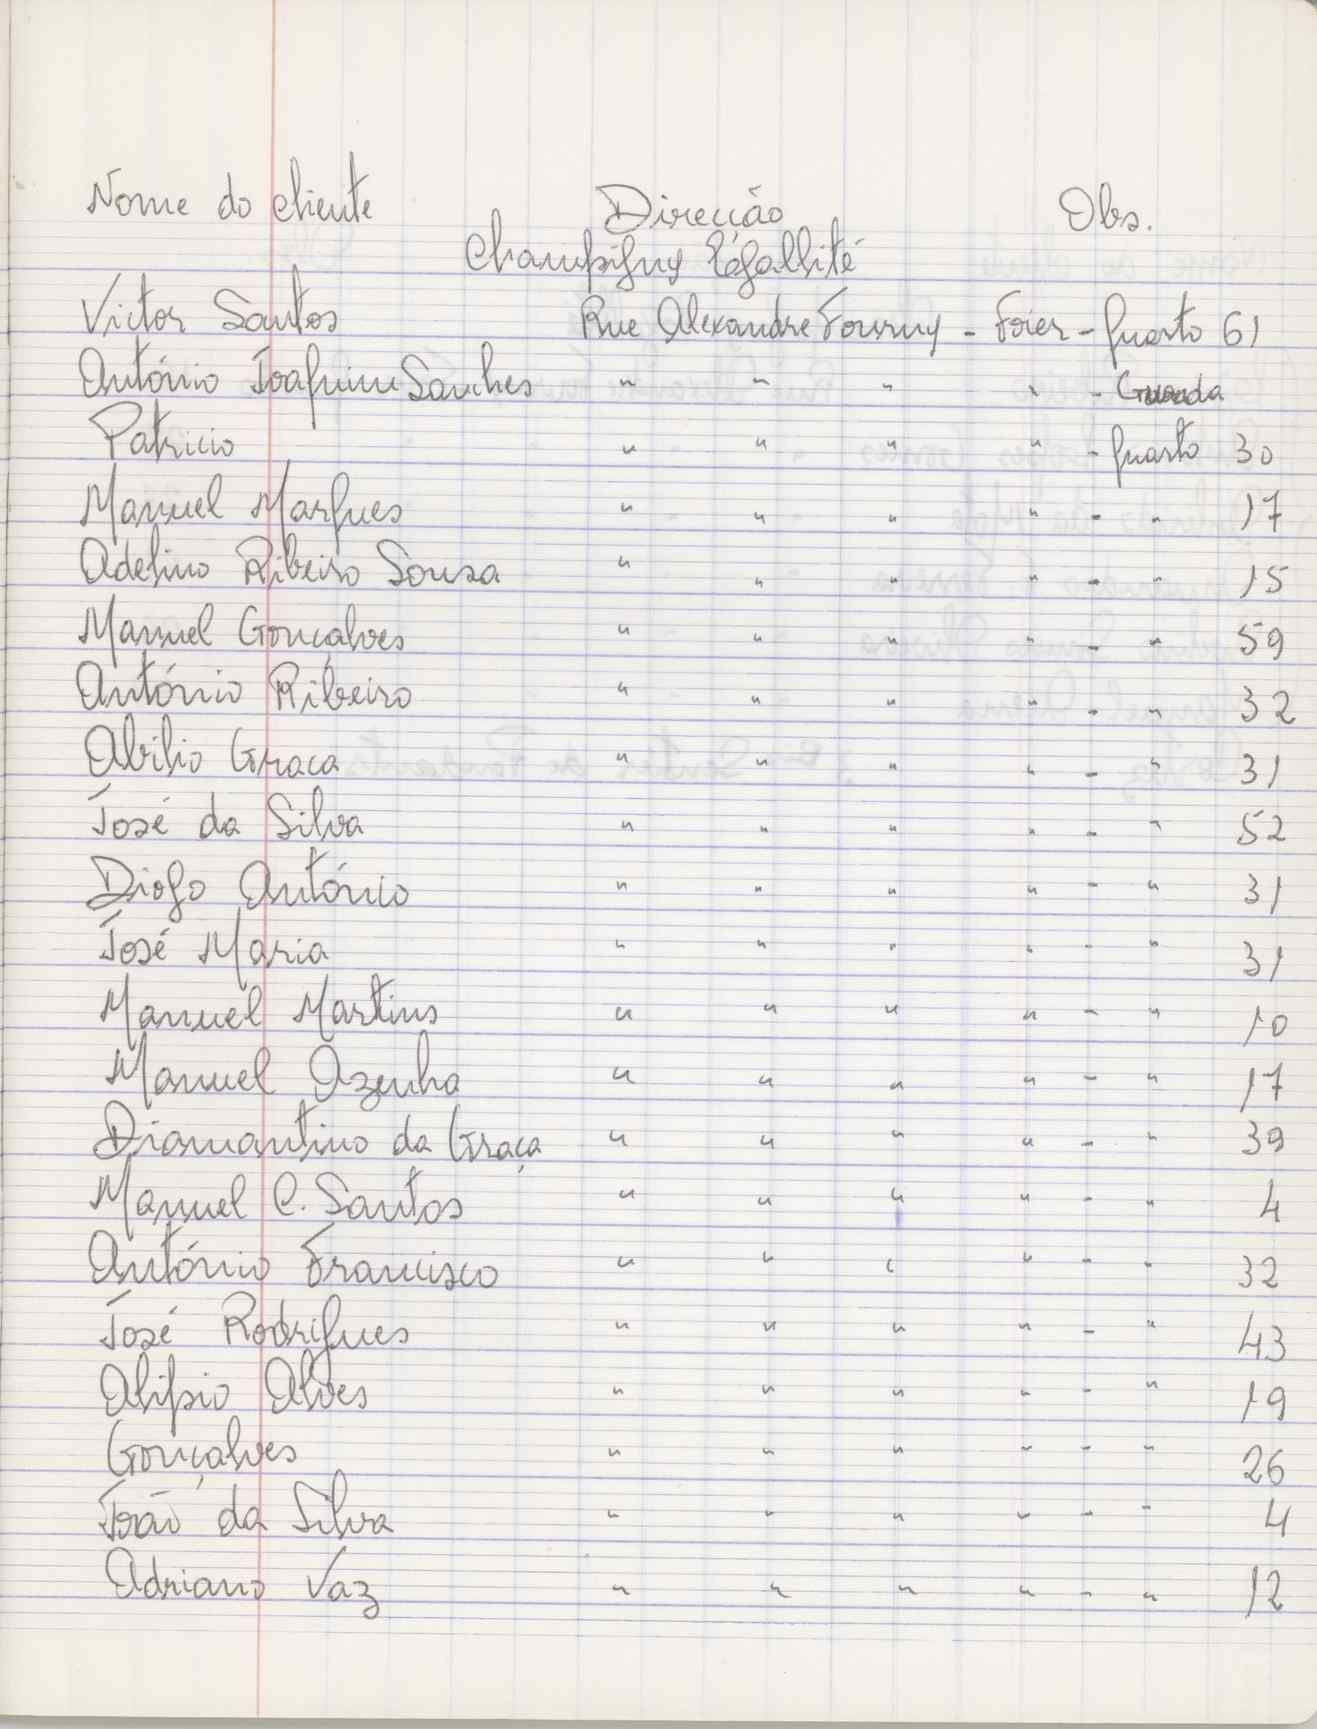 Nome do cliente Direcção Obs.
Champigny L'égallité
Victor Santos Rue Alexandre Fourny - Foier - quarto 61
António Joaquim Sanches " " " " - Guarda
Patricio " " " " - quarto 30
Manuel Marques " " " " - " 17
Adelino Ribeiro Sousa " " " " - " 15
Manuel Gonçalves " " " " - " 59
António Ribeiro " " " " - " 32
Abilio Graca " " " " - " 31
José da Silva " " " " - " 52
Diogo António " " " " - " 31
José Maria " " " " - " 31
Manuel Martins " " " " - " 10
Manuel Azenha " " " " - " 17
Diamantino da Graça " " " " - " 39
Manuel C. Santos " " " " - " 4
António Francisco " " " " - " 32
José Rodrigues " " " " - " 43
Alipio Alves " " " " - " 19
Gonçalves " " " " - " 26
João da Silva " " " " - " 4
Adriano Vaz " " " " - " 12